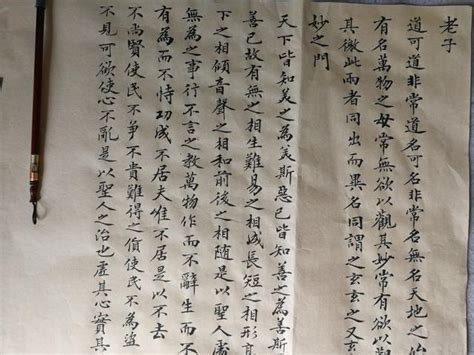 老子
道可道非常道名可名非常名無名天地之始
有名萬物之母常無欲以觀其妙常有欲以觀
其徼此兩者同出而異名同謂之玄玄之又玄
妙之門
天下皆知美之為美斯惡已皆知善之為善斯
善已故有無之相生難易之相成長短之相形
下之相傾音聲之相和前後之相随是以聖人處
無為之事行不言之教萬物作而不辭生而不
有為而不恃功成不居夫惟不居是以不去
不尚賢使民不爭不貴難得之貨使民不為盜
不見可欲使心不亂是以聖人之治也虛其心實其